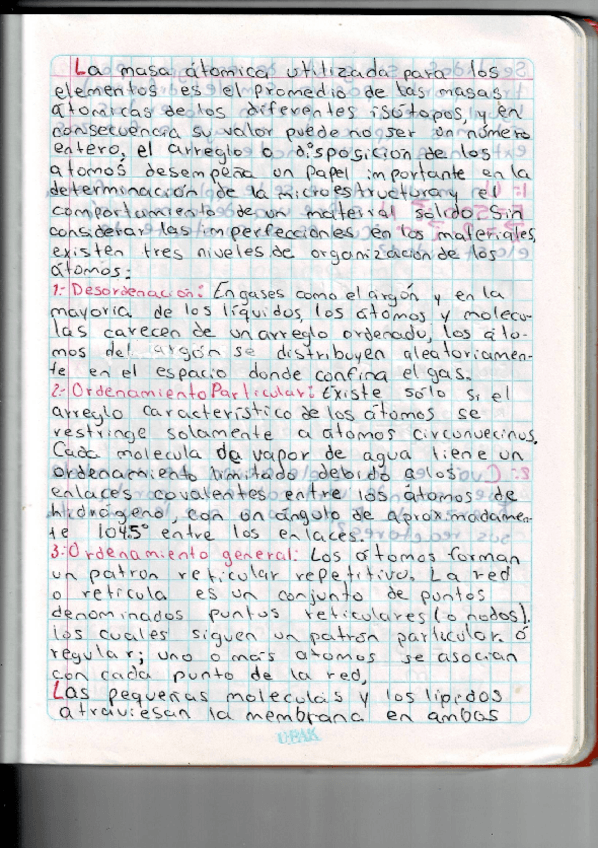 La masa átomica utilizada para los
elementos es el promedio de las masas
átomicas de los diferentes isótopos, y en
consecuencia su valor puede no ser un número
entero, el arreglo o disposición de los
átomos desempeña un papel importante en la
determinación de la microestructura y el
comportamiento de un material sólido. Sin
considerar las imperfecciones en los materiales,
existen tres niveles de organización de los
átomos:
1:- Desordenación: En gases como el argón y en la
mayoría de los líquidos, los átomos y molecu-
las carecen de un arreglo ordenado, los áto-
mos del argón se distribuyen aleatoriamen-
te en el espacio donde confina el gas.
2:- Ordenamiento Particular: Existe sólo si el
arreglo característico de los átomos se
restringe solamente a átomos circunvecinos.
Cada molecula de vapor de agua tiene un
ordenamiento limitado debido a los
enlaces covalentes entre los átomos de
hidrógeno, con un ángulo de aproximadamen-
te 104.5° entre los enlaces.
3:- Ordenamiento general: Los átomos forman
un patron reticular repetitivo. La red
o retícula es un conjunto de puntos
denominados puntos reticulares (o nodos).
los cuales siguen un patrón particular ó
regular; uno o más atomos se asocian
con cada punto de la red.
Las pequeñas moleculas y los lípidos
atraviesan la membrana en ambas